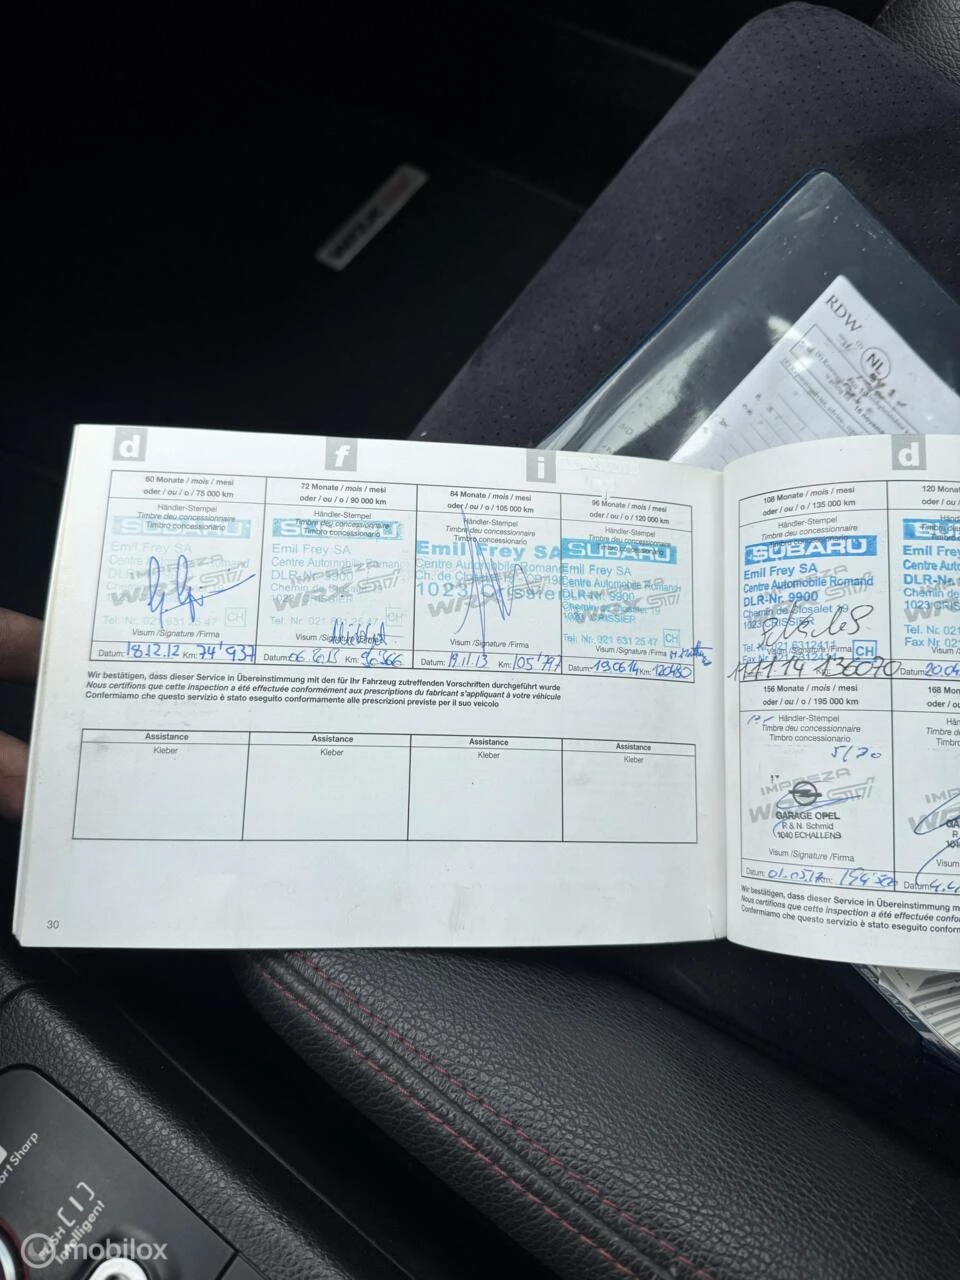 WRX
RDW
NL
d
f
i
d
60 Monate / mois / mesi
oder / ou / o / 75 000 km
Händler-Stempel
Timbre deu concessionnaire
Timbro concessionario
SUBARU
Emil Frey SA
Centre Automobile Romand
IMPREZA
WRX STI
Tel. Nr. 021 631 25 47
CH
Visum /Signature /Firma
Datum: 18.12.12 Km: 74'937
72 Monate / mois / mesi
oder / ou / o / 90 000 km
Händler-Stempel
Timbre deu concessionnaire
Timbro concessionario
SUBARU
Emil Frey SA
Centre Automobile Romand
DLR-Nr. 9900
1023 CRISSIER
Tel. Nr. 021 631 25 47
CH
Visum /Signature
Datum: 06.6.13 Km:
84 Monate / mois / mesi
oder / ou / o / 105 000 km
Händler-Stempel
Timbre deu concessionnaire
Timbro concessionario
Emil Frey SA
Centre Automobile Romand
1023 Crissier
Visum /Signature /Firma
Datum: 19.11.13 Km: 105'797
96 Monate / mois / mesi
oder / ou / o / 120 000 km
Händler-Stempel
Timbre deu concessionnaire
SUBARU
Emil Frey SA
Centre Automobile Romand
DLR-Nr. 9900
Chemin de Closalet 19
1023 CRISSIER
Tel. Nr. 021 631 25 47
CH
Visum /Signature /Firma
Datum: 19.06.14 Km: 120480
108 Monate / mois / mesi
oder / ou / o / 135 000 km
Händler-Stempel
Timbre deu concessionnaire
Timbro concessionario
SUBARU
Emil Frey SA
Centre Automobile Romand
DLR-Nr. 9900
Chemin de Closalet 19
1023 CRISSIER
CH
136070
120 Mona
oder / ou /
Emil Frey
Centre Auto
DLR-Nr.
Tel. Nr. 021
Fax Nr. 02
Visum
Datum: 20.04
Wir bestätigen, dass dieser Service in Übereinstimmung mit den für Ihr Fahrzeug zutreffenden Vorschriften durchgeführt wurde
Nous certifions que cette inspection a été effectuée conformément aux prescriptions du fabricant s'appliquant à votre véhicule
Confermiamo che questo servizio è stato eseguito conformamente alle prescrizioni previste per il suo veicolo
Assistance
Kleber
Assistance
Kleber
Assistance
Kleber
Assistance
Kleber
156 Monate / mois / mesi
oder / ou / o / 195 000 km
Händler-Stempel
Timbre deu concessionnaire
Timbro concessionario
5/20
IMPREZA
WRX STI
GARAGE OPEL
R & N. Schmid
1040 ECHALLENS
Visum /Signature /Firma
Datum: 01.05.17 Km:
168 Mon
oder / ou
Timbre d
Timbro
Visum
Datum:
Wir bestätigen, dass dieser Service in Übereinstimmung m
Nous certifions que cette inspection a été effectuée confo
Confermiamo che questo servizio è stato eseguito conform
30
SUBARU
ort Sharp
[I]
Intelligent
mobilox